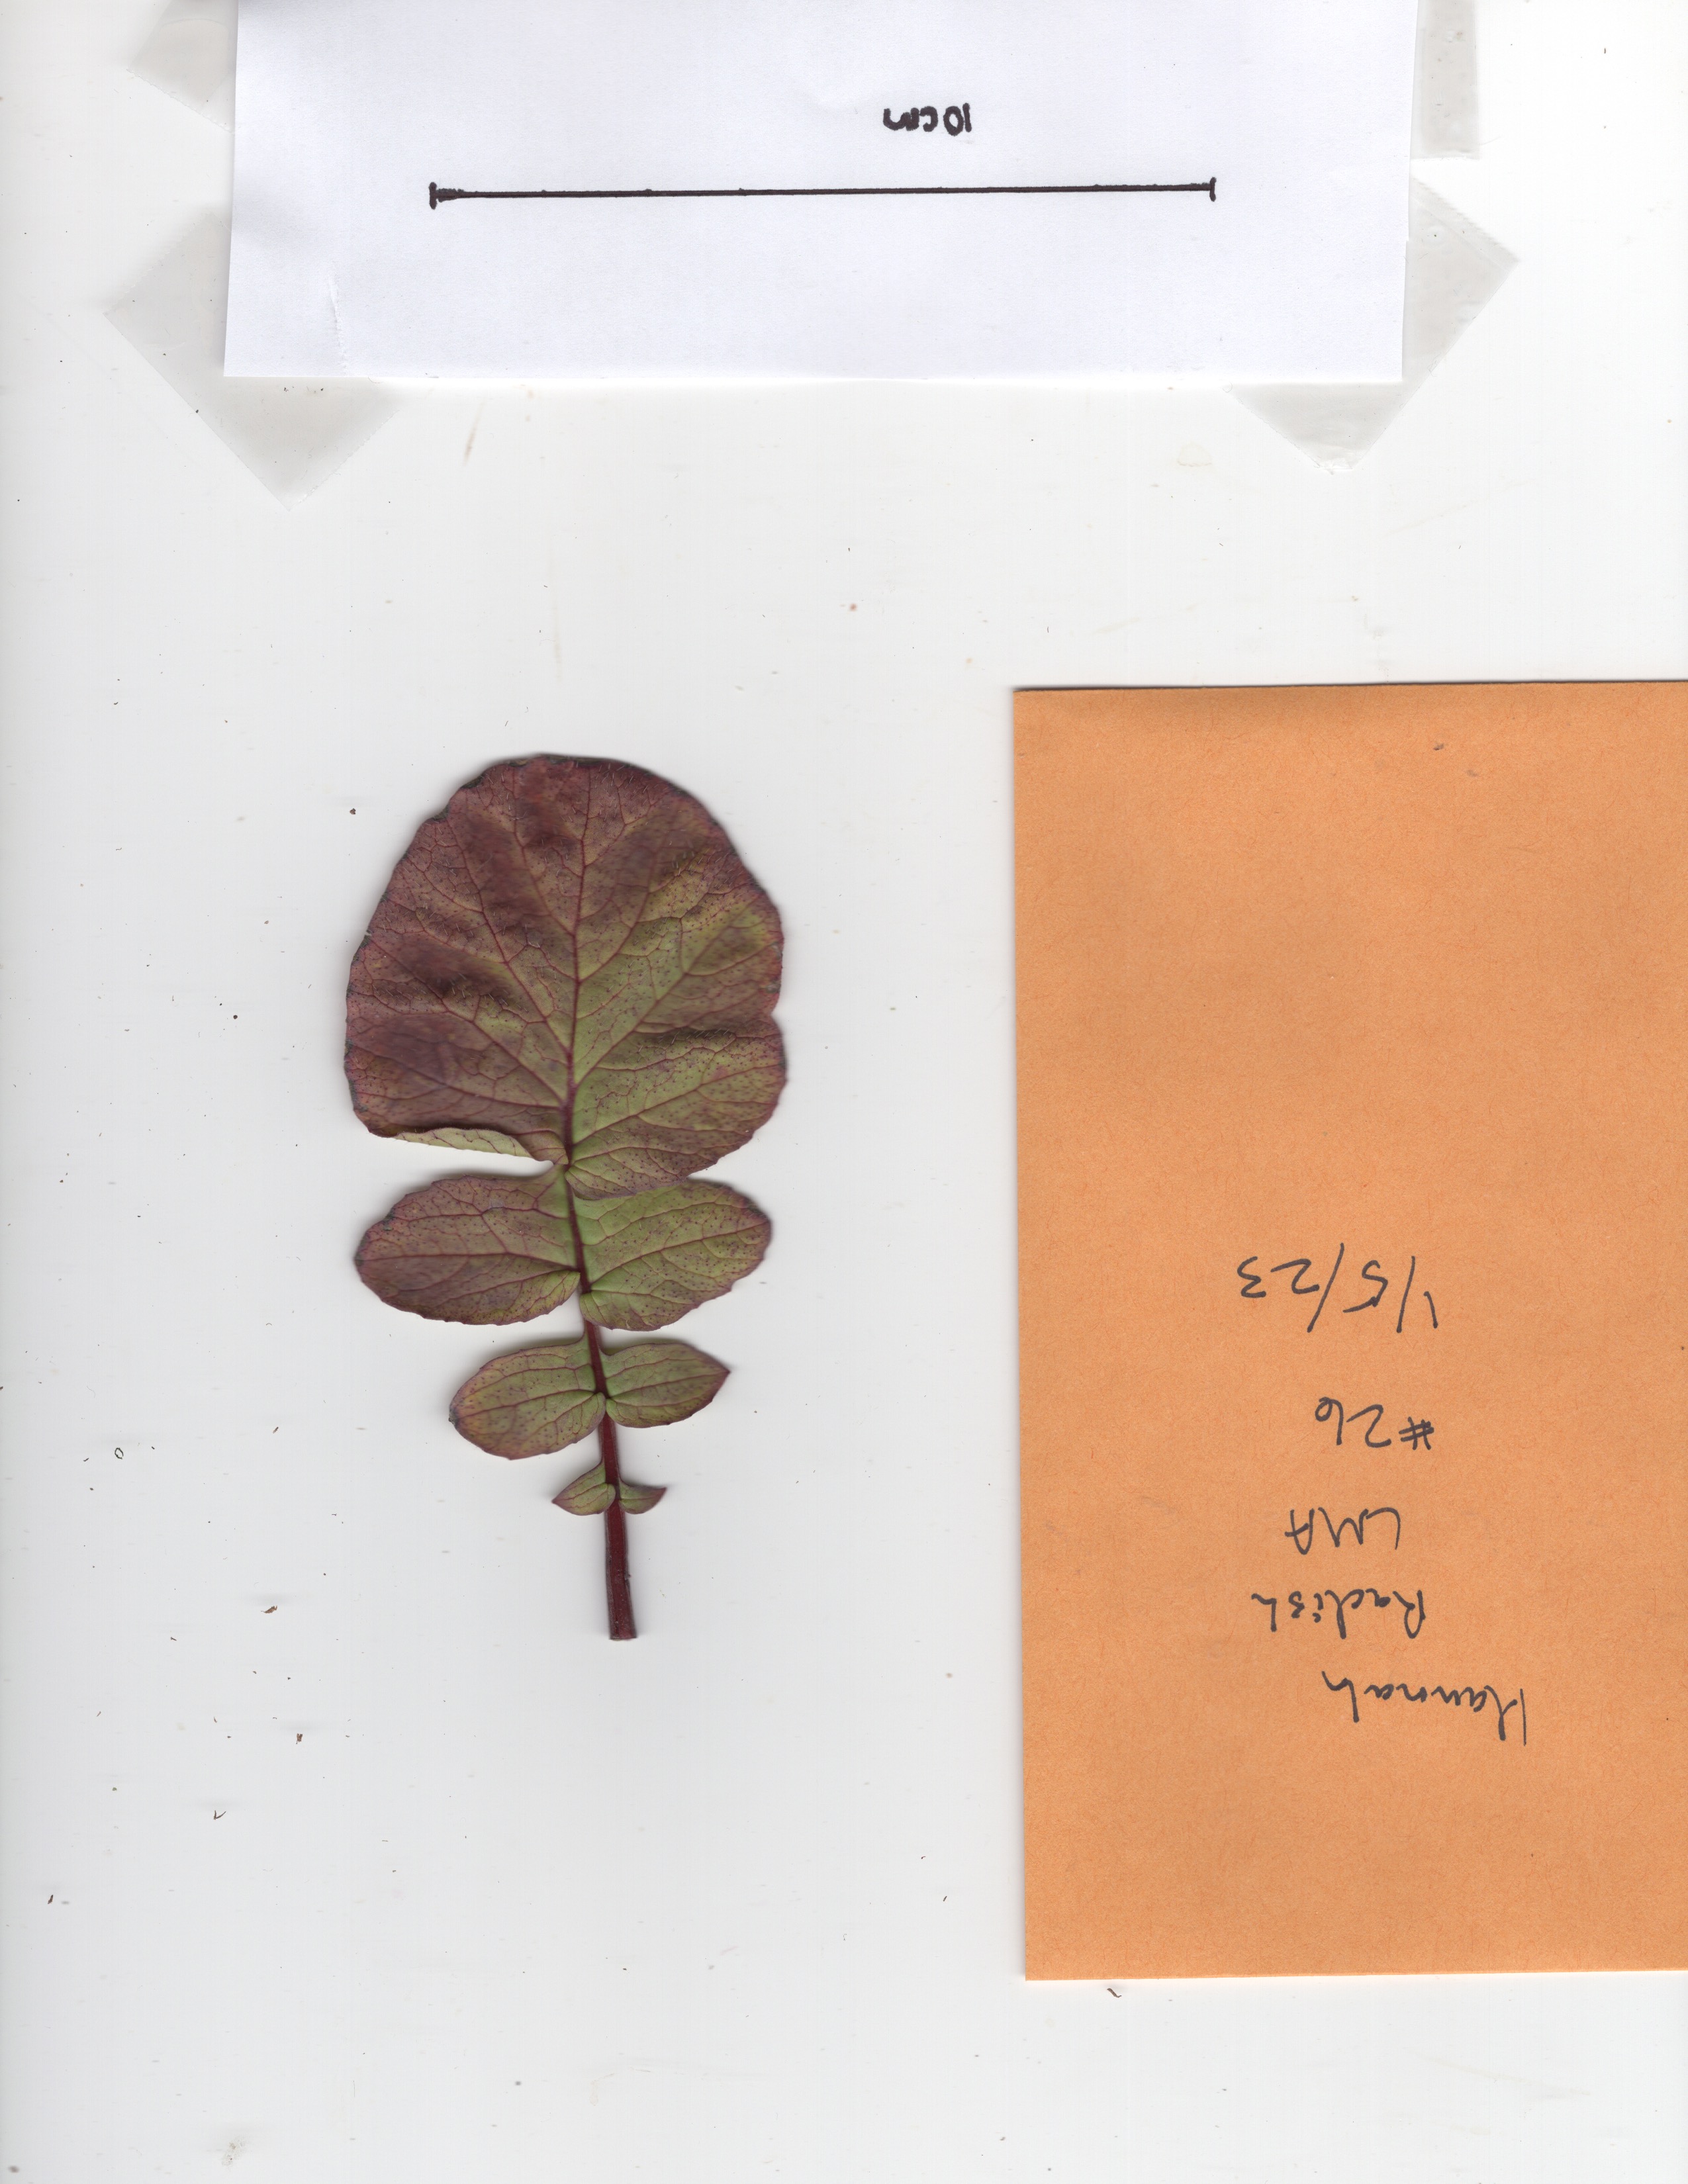 10cm
Hannah
Radish
LMA
#26
1/5/23